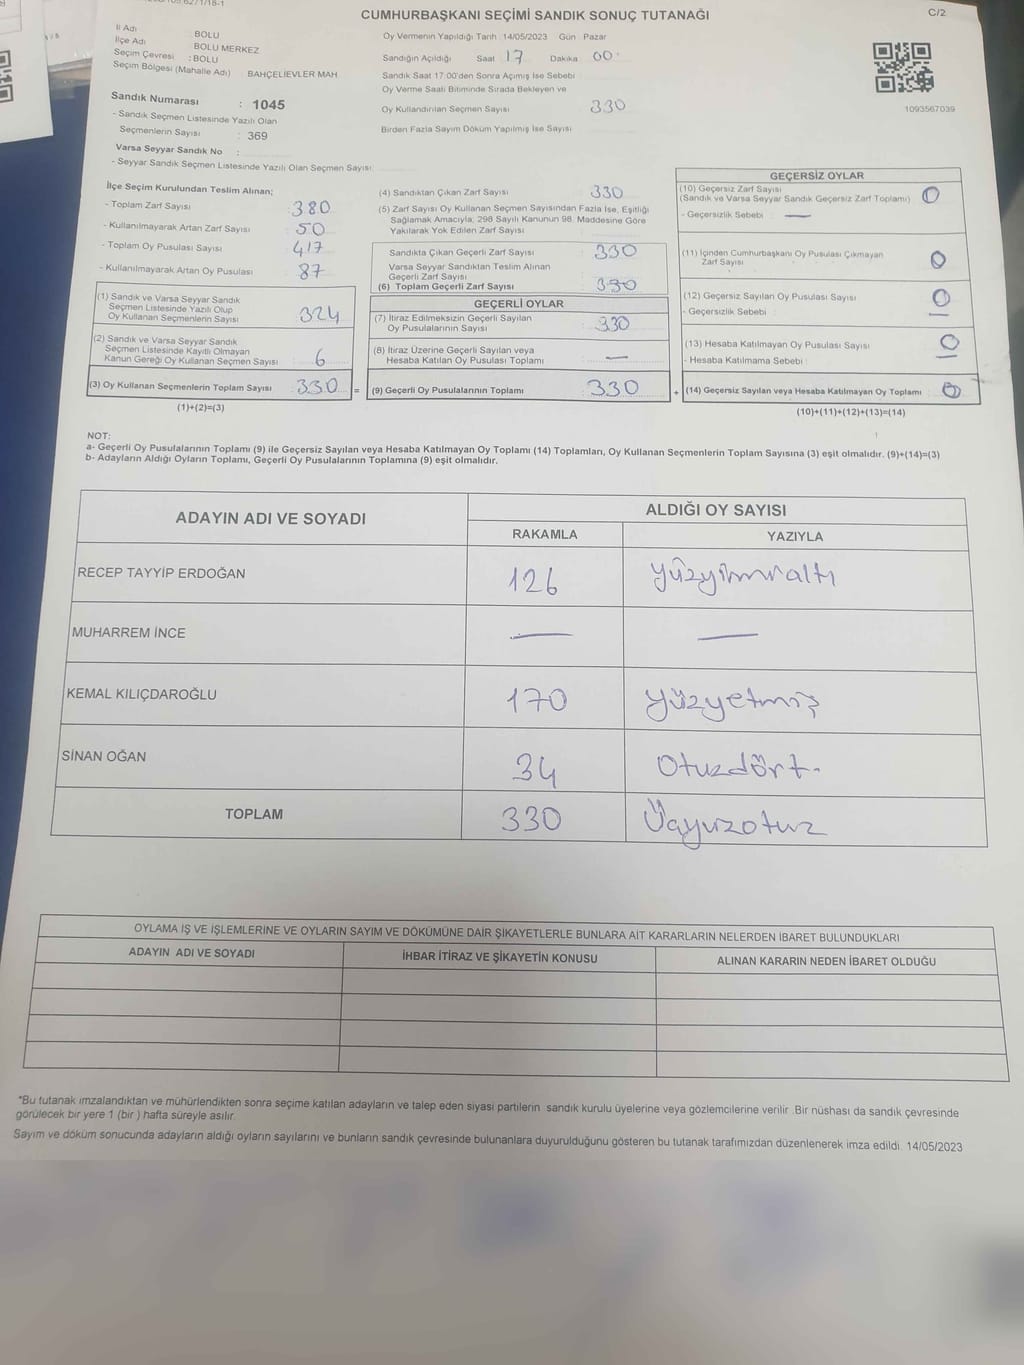 CUMHURBAŞKANI SEÇİMİ SANDIK SONUÇ TUTANAĞI
C/2
İl Adı : BOLU
İlçe Adı : BOLU MERKEZ
Seçim Çevresi : BOLU
Seçim Bölgesi (Mahalle Adı) : BAHÇELİEVLER MAH.
Sandık Numarası : 1045
- Sandık Seçmen Listesinde Yazılı Olan
Seçmenlerin Sayısı : 369
Varsa Seyyar Sandık No :
- Seyyar Sandık Seçmen Listesinde Yazılı Olan Seçmen Sayısı:
Oy Vermenin Yapıldığı Tarih :14/05/2023 Gün : Pazar
Sandığın Açıldığı Saat 17 Dakika 00
Sandık Saat 17:00'den Sonra Açımış İse Sebebi
Oy Verme Saati Bitiminde Sırada Bekleyen ve
Oy Kullandırılan Seçmen Sayısı 330
Birden Fazla Sayım Döküm Yapılmış İse Sayısı
1093567039
İlçe Seçim Kurulundan Teslim Alınan;
- Toplam Zarf Sayısı : 380
- Kullanılmayarak Artan Zarf Sayısı : 50
- Toplam Oy Pusulası Sayısı : 417
- Kullanılmayarak Artan Oy Pusulası : 87
(1) Sandık ve Varsa Seyyar Sandık
Seçmen Listesinde Yazılı Olup
Oy Kullanan Seçmenlerin Sayısı : 324
(2) Sandık ve Varsa Seyyar Sandık
Seçmen Listesinde Kayıtlı Olmayan
Kanun Gereği Oy Kullanan Seçmen Sayısı : 6
(3) Oy Kullanan Seçmenlerin Toplam Sayısı : 330 =
(1)+(2)=(3)
(4) Sandıktan Çıkan Zarf Sayısı : 330
(5) Zarf Sayısı Oy Kullanan Seçmen Sayısından Fazla İse, Eşitliği
Sağlamak Amacıyla; 298 Sayılı Kanunun 98. Maddesine Göre
Yakılarak Yok Edilen Zarf Sayısı :
Sandıkta Çıkan Geçerli Zarf Sayısı : 330
Varsa Seyyar Sandıktan Teslim Alınan
Geçerli Zarf Sayısı :
(6) Toplam Geçerli Zarf Sayısı : 330
GEÇERLİ OYLAR
(7) İtiraz Edilmeksizin Geçerli Sayılan
Oy Pusulalarının Sayısı : 330
(8) İtiraz Üzerine Geçerli Sayılan veya
Hesaba Katılan Oy Pusulası Toplamı : —
(9) Geçerli Oy Pusulalarının Toplamı : 330 +
GEÇERSİZ OYLAR
(10) Geçersiz Zarf Sayısı
(Sandık ve Varsa Seyyar Sandık Geçersiz Zarf Toplamı) : 0
- Geçersizlik Sebebi : —
(11) İçinden Cumhurbaşkanı Oy Pusulası Çıkmayan
Zarf Sayısı : 0
(12) Geçersiz Sayılan Oy Pusulası Sayısı : 0
- Geçersizlik Sebebi : —
(13) Hesaba Katılmayan Oy Pusulası Sayısı : 0
- Hesaba Katılmama Sebebi : —
(14) Geçersiz Sayılan veya Hesaba Katılmayan Oy Toplamı : 0
(10)+(11)+(12)+(13)=(14)
NOT:
a- Geçerli Oy Pusulalarının Toplamı (9) ile Geçersiz Sayılan veya Hesaba Katılmayan Oy Toplamı (14) Toplamları, Oy Kullanan Seçmenlerin Toplam Sayısına (3) eşit olmalıdır. (9)+(14)=(3)
b- Adayların Aldığı Oyların Toplamı, Geçerli Oy Pusulalarının Toplamına (9) eşit olmalıdır.
ADAYIN ADI VE SOYADI
ALDIĞI OY SAYISI
RAKAMLA YAZIYLA
RECEP TAYYİP ERDOĞAN 126 Yüzyirmialtı
MUHARREM İNCE — —
KEMAL KILIÇDAROĞLU 170 yüzyetmiş
SİNAN OĞAN 34 Otuzdört.
TOPLAM 330 Üçyüzotuz
OYLAMA İŞ VE İŞLEMLERİNE VE OYLARIN SAYIM VE DÖKÜMÜNE DAİR ŞİKAYETLERLE BUNLARA AİT KARARLARIN NELERDEN İBARET BULUNDUKLARI
ADAYIN ADI VE SOYADI İHBAR İTİRAZ VE ŞİKAYETİN KONUSU ALINAN KARARIN NEDEN İBARET OLDUĞU
*Bu tutanak imzalandıktan ve mühürlendikten sonra seçime katılan adayların ve talep eden siyasi partilerin sandık kurulu üyelerine veya gözlemcilerine verilir .Bir nüshası da sandık çevresinde
görülecek bir yere 1 (bir ) hafta süreyle asılır.
Sayım ve döküm sonucunda adayların aldığı oyların sayılarını ve bunların sandık çevresinde bulunanlara duyurulduğunu gösteren bu tutanak tarafımızdan düzenlenerek imza edildi. 14/05/2023